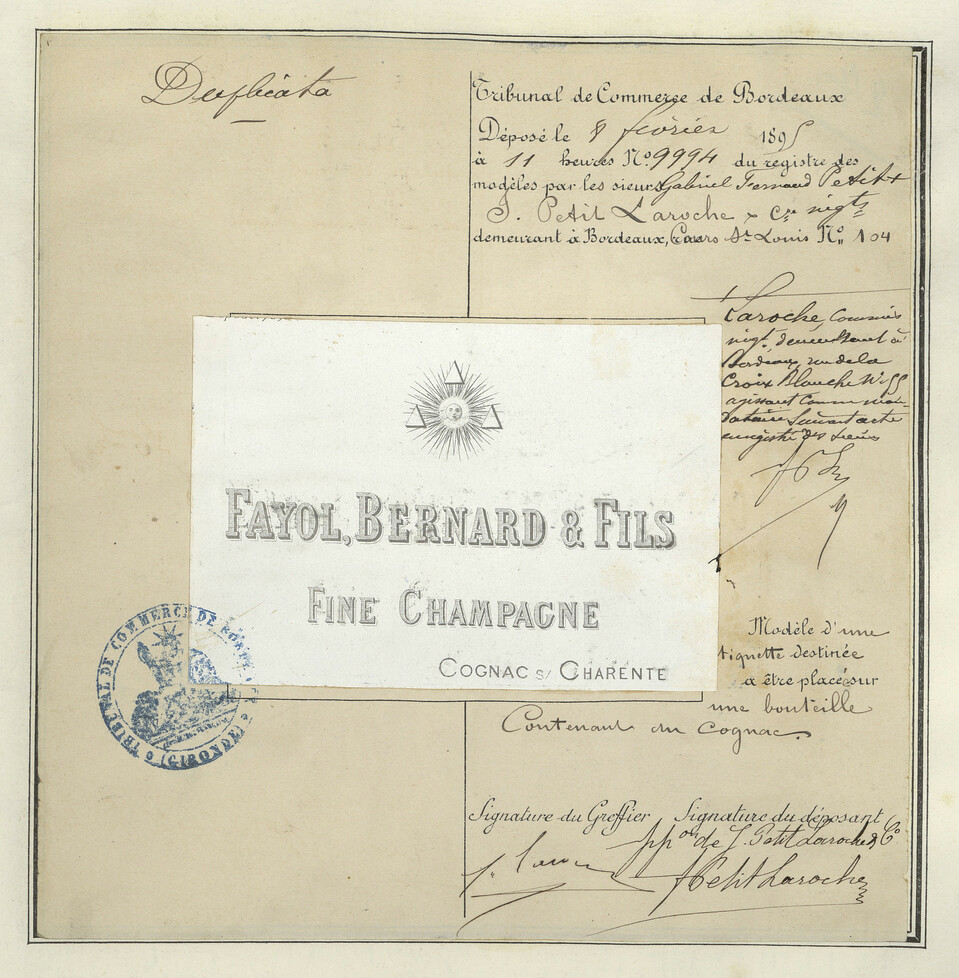 Duplicata
Tribunal de Commerce de Bordeaux
Déposé le 8 février 1895
à 11 heures No. 9994 du registre des
modèles par les sieurs Gabriel Fernand Petit
J. Petit Laroche & Cie négts
demeurant à Bordeaux, Cours St Louis No. 104
Laroche, Commis
négt, demeurant à
Bordeaux, rue de la
Croix Blanche No 55
agissant Comme man
dataire Suivant acte
enregistré des sieurs
FAYOL, BERNARD & FILS
FINE CHAMPAGNE
COGNAC S/ CHARENTE
TRIBUNAL DE COMMERCE DE BORDEAUX
(GIRONDE)
Modèle d'une
tiquette destinée
a être placé sur
une bouteille
Contenant du Cognac.
Signature du Greffier Signature du déposant
ppon de J. Petit Laroche & Co
Petit Laroche